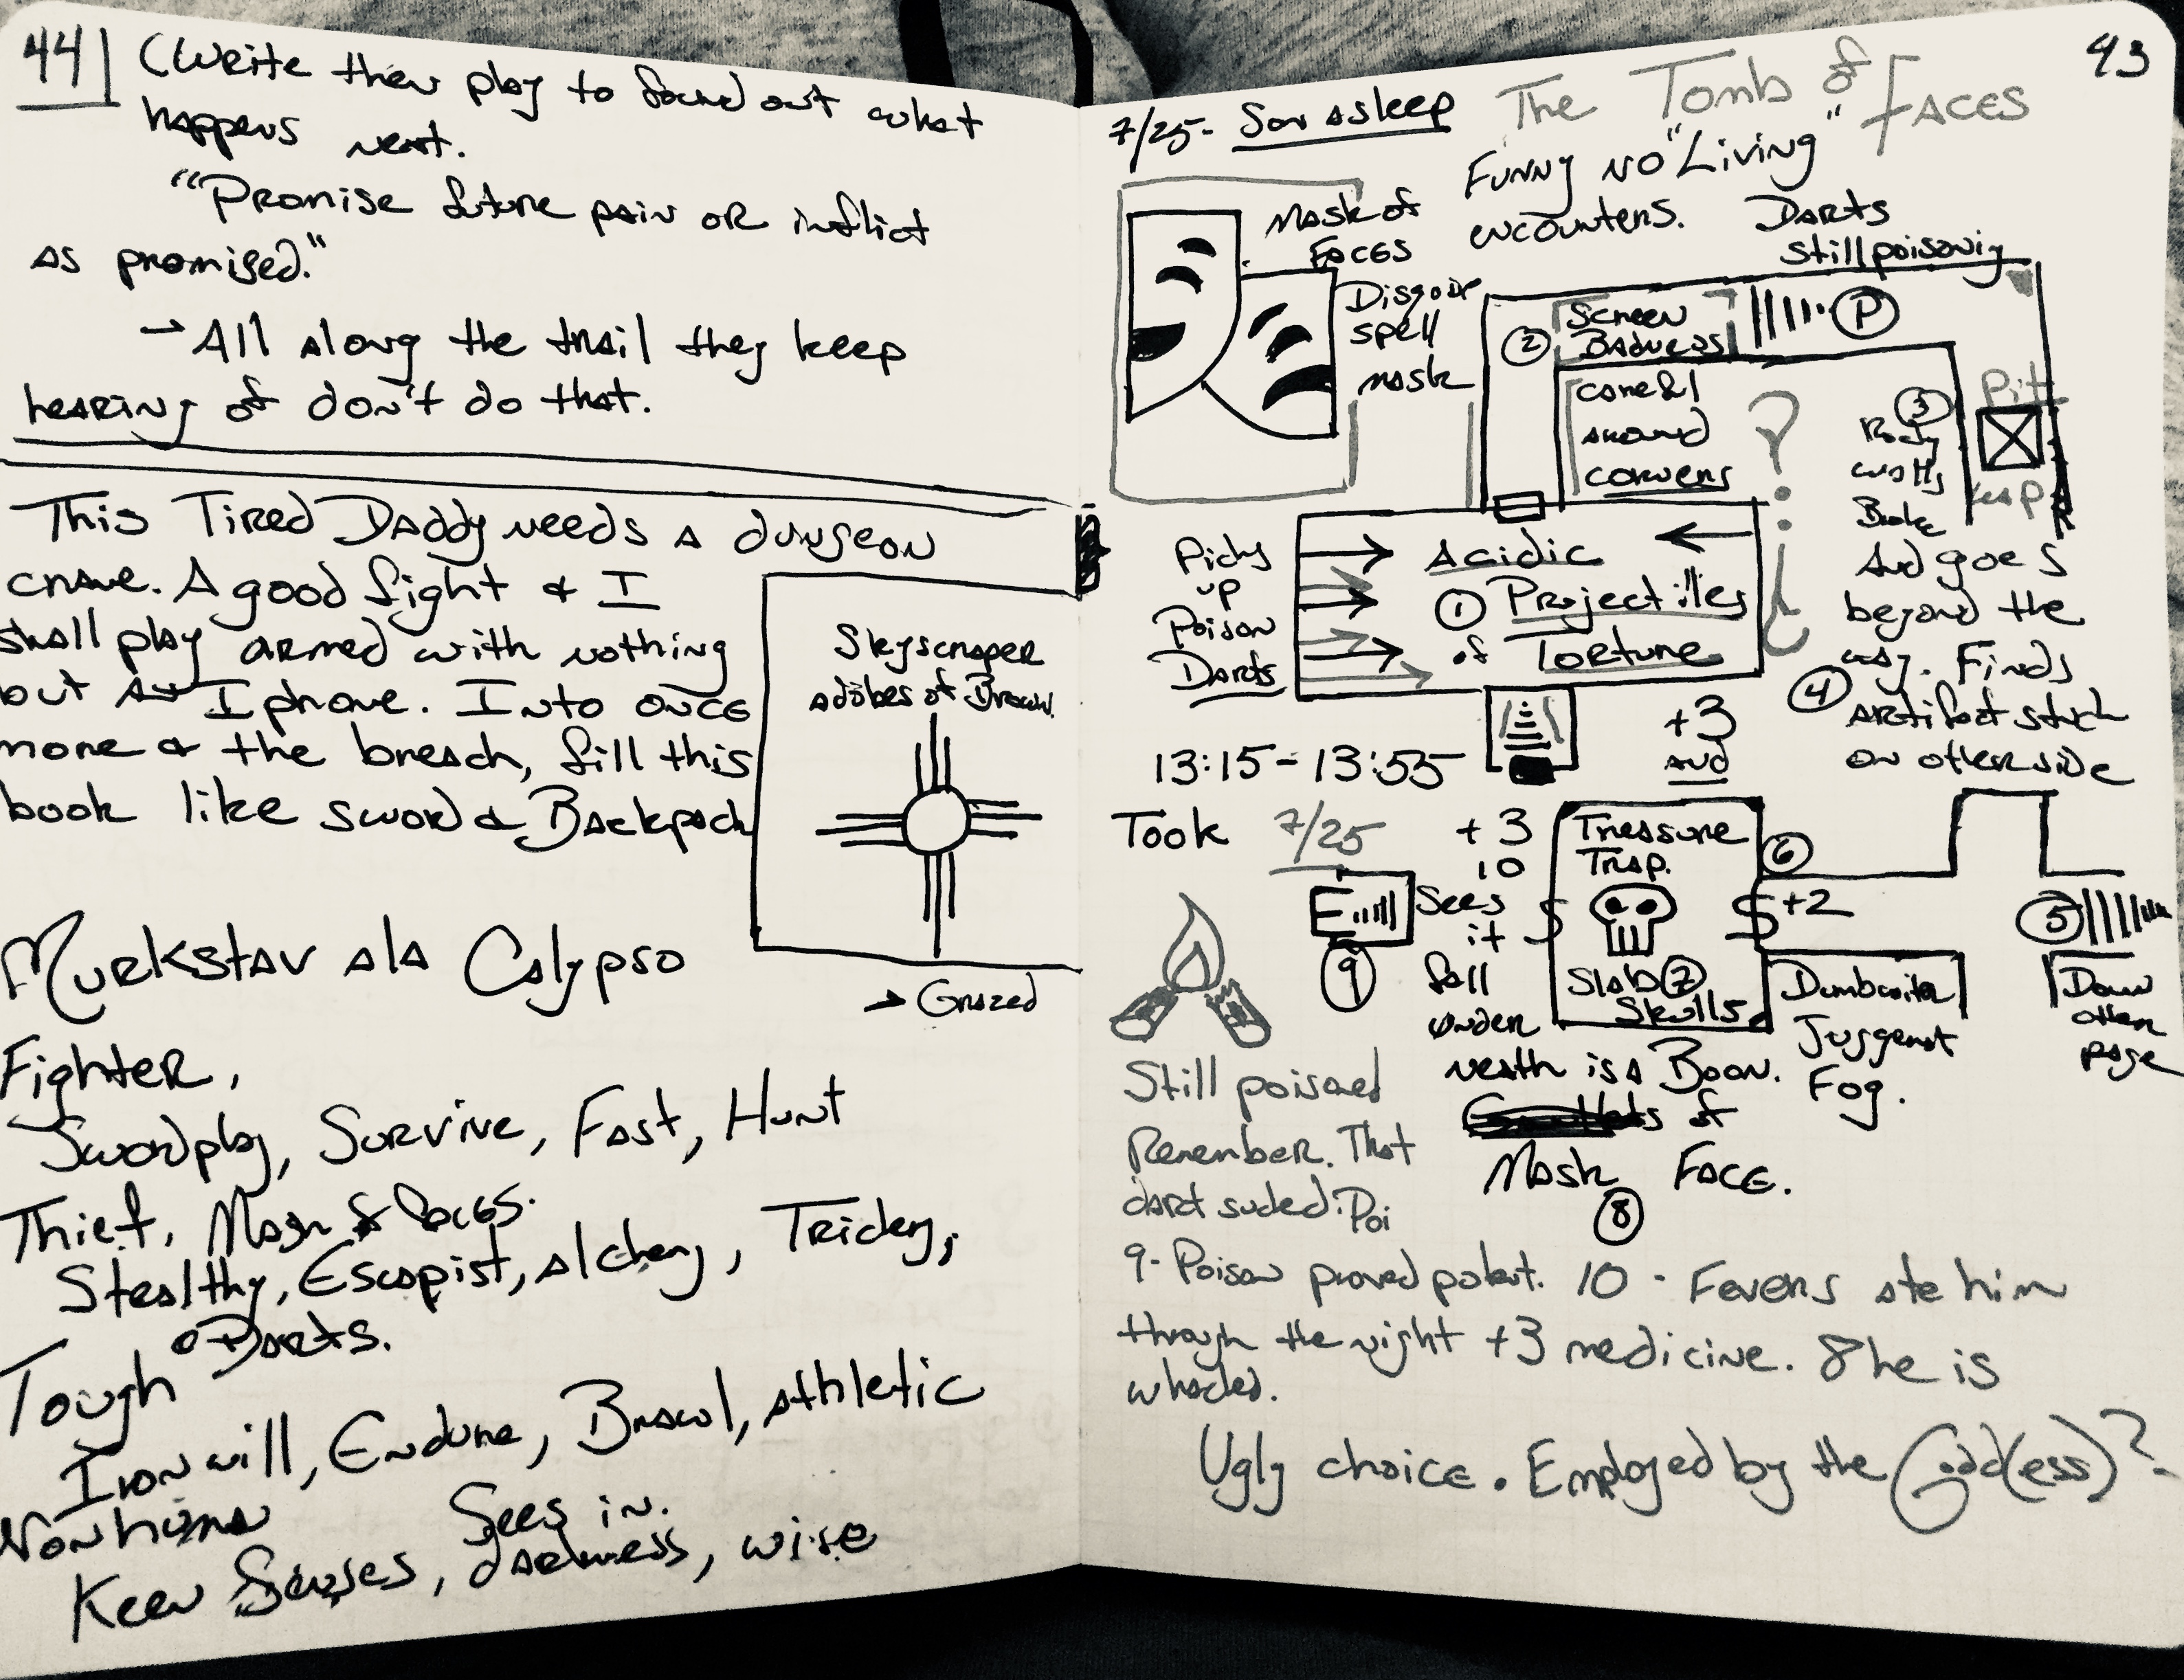 44
(Write then play to found out what
happens next.
"Promise future pain or inflict
as promised."
→ All along the trail they keep
hearing of don't do that.
This Tired Daddy needs a dungeon
crave. A good fight & I
shall play armed with nothing
but an Iphone. Into once
more & the breach, fill this
book like sword & Backpack
Skyscraper
adobes of Brown.
→ Grazed
Murkstav ala Calypso
Fighter,
Swordplay, Survive, Fast, Hunt
Thief, Mask of faces.
Stealthy, Escapist, alchemy, Trickery,
Darts.
Tough
Iron will, Endure, Brawl, athletic
Nonhuman
Sees in
Keen Senses, darkness, wise
43
7/25- Son asleep The Tomb of Faces
Funny no "Living"
encounters.
Darts
still poisoning
Mask of
Faces
Disguise
spell
mask
2 Screen
Badness
P
around
corners
?
3
Pit
trap
walls
Broke
And goes
beyond the
way. Finds
4 artifact stuck
on otherside
Picks
up
Poison
Darts
Acidic
1 Projectiles
of Torture
13:15-13:55
+3
and
Took 7/25
+3
10
Treasure
Trap.
6
E
9
Sees
it
fall
under
neath is a Boon.
$
$ +2
Slab 7
Skulls
5
Dumbwaiter
Juggernaut
Fog.
Down
other
page
of
Mask Face.
8
Still poisoned
Remember. That
dart sucked: Poi
9- Poison proved potent. 10 - Fevers ate him
through the night +3 medicine. 8 he is
whacked.
Ugly choice. Employed by the God(ess)?